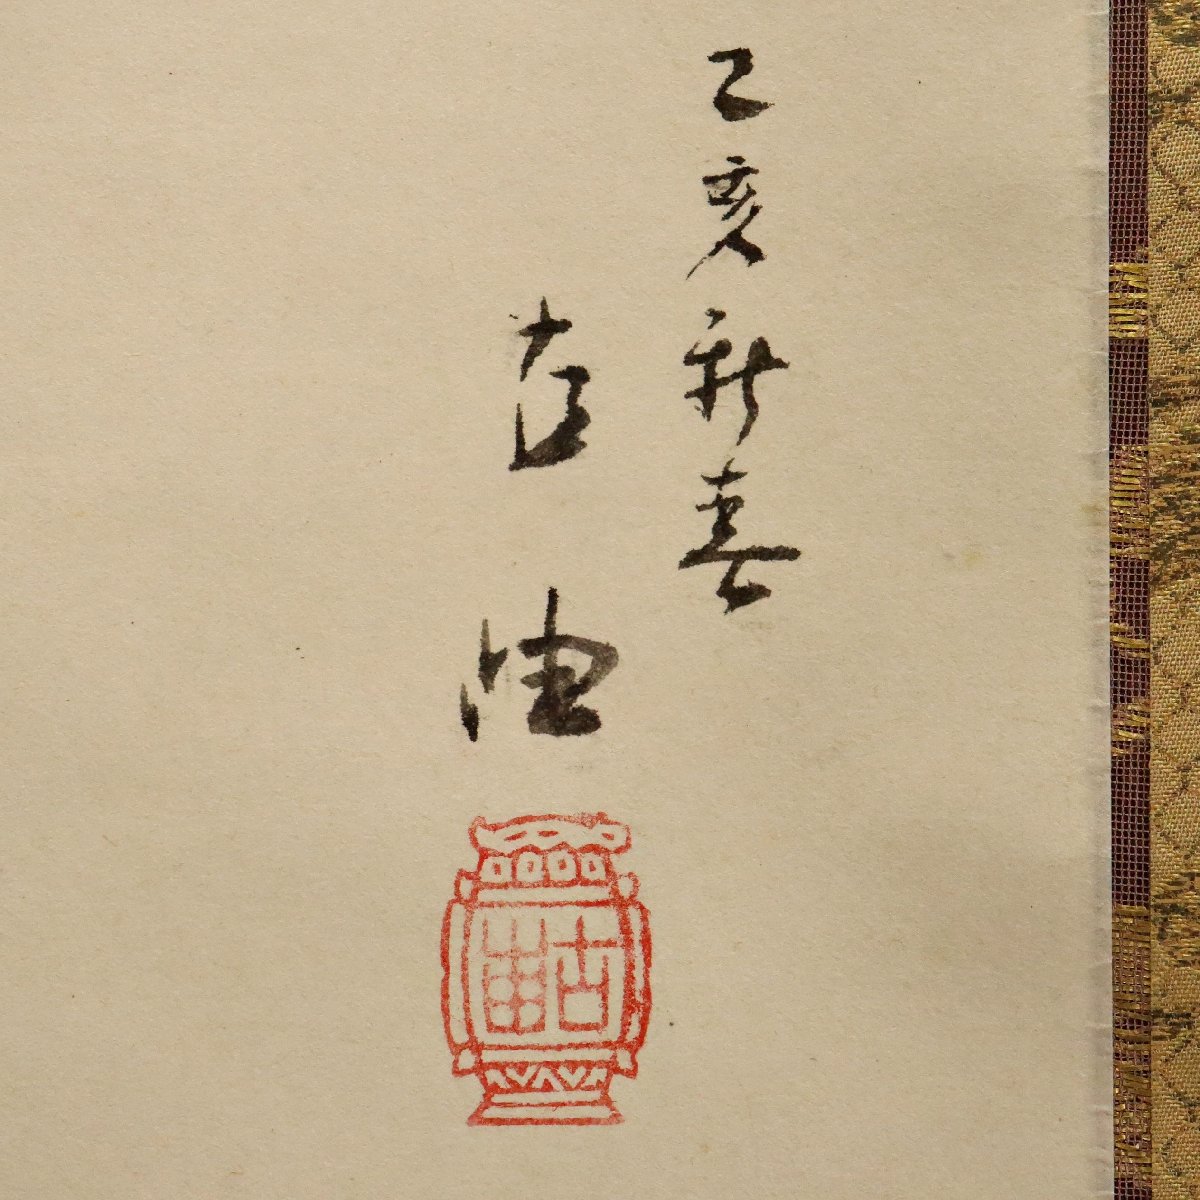 乙亥新春
古
古